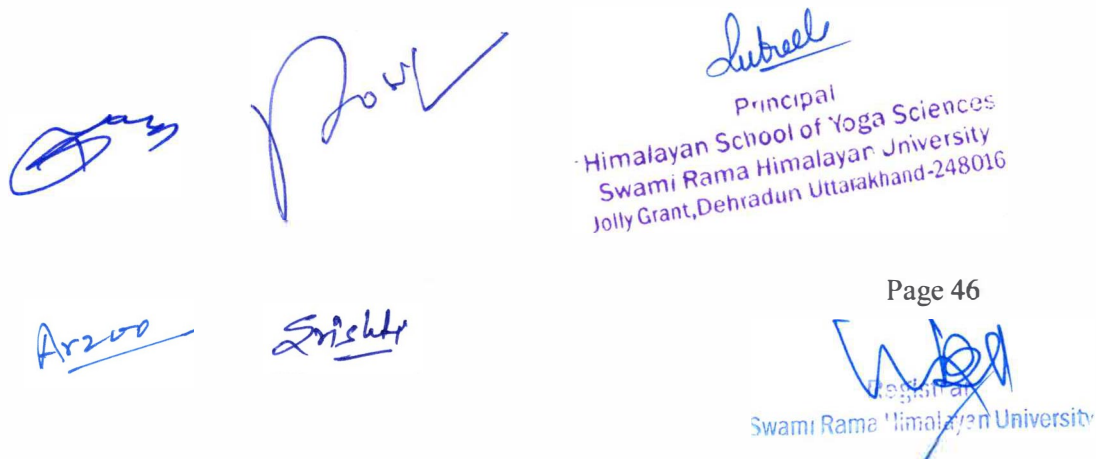 Principal
Himalayan School of Yoga Sciences
Swami Rama Himalayan University
Jolly Grant, Dehradun Uttarakhand-248016
Page 46
Arzoo
Srishti
Registrar
Swami Rama Himalayan University